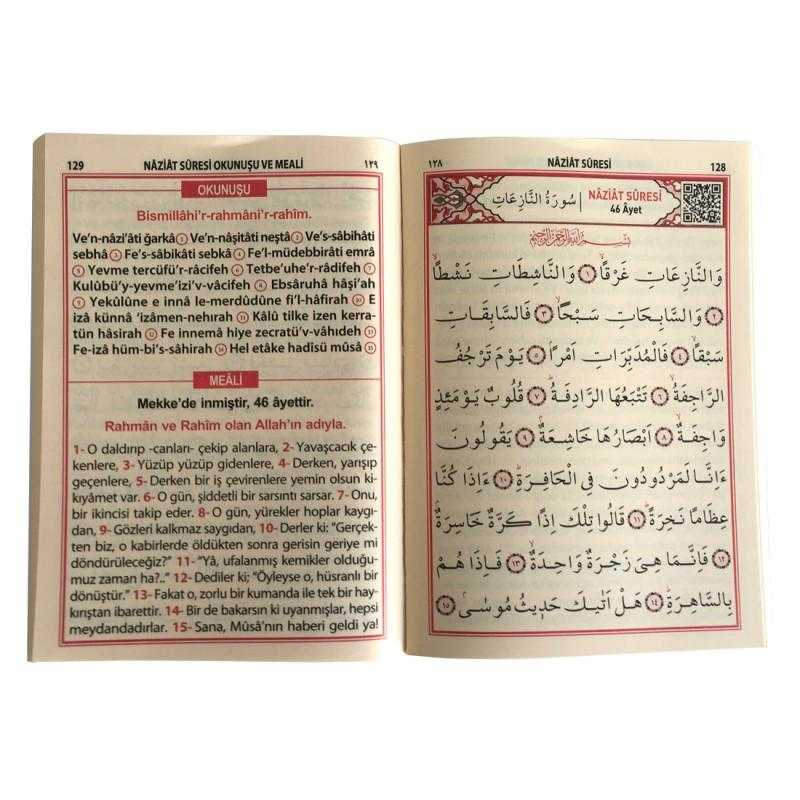 129 NÂZİÂT SÛRESİ OKUNUŞU VE MEALİ ١٢٩
OKUNUŞU
Bismillâhi'r-rahmâni'r-rahîm.
Ve'n-nâzi'âti ğarkâ ① Ve'n-nâşitâti neştâ ② Ve's-sâbihâti
sebhâ ③ Fe's-sâbikâti sebkâ ④ Fe'l-müdebbirâti emrâ
⑤ Yevme tercüfü'r-râcifeh ⑥ Tetbe'uhe'r-râdifeh ⑦
Kulûbü'y-yevme'izi'v-vâcifeh ⑧ Ebsâruhâ hâşi'ah
⑨ Yekûlûne e innâ le-merdûdûne fi'l-hâfirah ⑩ E
izâ künnâ 'izâmen-nehırah ⑪ Kâlû tilke izen kerra-
tün hâsirah ⑫ Fe innemâ hiye zecratü'v-vâhıdeh ⑬
Fe-izâ hüm-bi's-sâhirah ⑭ Hel etâke hadîsü mûsâ ⑮
MEÂLİ
Mekke'de inmiştir, 46 âyettir.
Rahmân ve Rahîm olan Allah'ın adıyla.
1- O daldırıp -canları- çekip alanlara, 2- Yavaşcacık çe-
kenlere, 3- Yüzüp yüzüp gidenlere, 4- Derken, yarışıp
geçenlere, 5- Derken bir iş çevirenlere yemin olsun ki-
kıyâmet var. 6- O gün, şiddetli bir sarsıntı sarsar. 7- Onu,
bir ikincisi takip eder. 8- O gün, yürekler hoplar kaygı-
dan, 9- Gözleri kalkmaz saygıdan, 10- Derler ki: "Gerçek-
ten biz, o kabirlerde öldükten sonra gerisin geriye mi
döndürüleceğiz?" 11- "Yâ, ufalanmış kemikler olduğu-
muz zaman ha?.." 12- Dediler ki; "Öyleyse o, hüsranlı bir
dönüştür." 13- Fakat o, zorlu bir kumanda ile tek bir hay-
kırıştan ibarettir. 14- Bir de bakarsın ki uyanmışlar, hepsi
meydandadırlar. 15- Sana, Mûsâ'nın haberi geldi ya!
١٢٨ NÂZİÂT SÛRESİ 128
سُورَةُ النَّازِعَاتِ NÂZİÂT SÛRESİ
46 Âyet
بِسْمِ اللهِ الرَّحْمٰنِ الرَّحِيمِ
وَالنَّازِعَاتِ غَرْقًاۙ ﴿١﴾ وَالنَّاشِطَاتِ نَشْطًاۙ
﴿٢﴾ وَالسَّابِحَاتِ سَبْحًاۙ ﴿٣﴾ فَالسَّابِقَاتِ
سَبْقًاۙ ﴿٤﴾ فَالْمُدَبِّرَاتِ اَمْرًاۢ ﴿٥﴾ يَوْمَ تَرْجُفُ
الرَّاجِفَةُۙ ﴿٦﴾ تَتْبَعُهَا الرَّادِفَةُۜ ﴿٧﴾ قُلُوبٌ يَوْمَئِذٍ
وَاجِفَةٌۙ ﴿٨﴾ اَبْصَارُهَا خَاشِعَةٌۢ ﴿٩﴾ يَقُولُونَ
ءَاِنَّا لَمَرْدُودُونَ فِي الْحَافِرَةِۜ ﴿١٠﴾ ءَاِذَا كُنَّا
عِظَامًا نَخِرَةًۜ ﴿١١﴾ قَالُوا تِلْكَ اِذًا كَرَّةٌ خَاسِرَةٌۢ
﴿١٢﴾ فَاِنَّمَا هِيَ زَجْرَةٌ وَاحِدَةٌۙ ﴿١٣﴾ فَاِذَا هُمْ
بِالسَّاهِرَةِۜ ﴿١٤﴾ هَلْ اَتٰيكَ حَدِيثُ مُوسٰىۢ ﴿١٥﴾